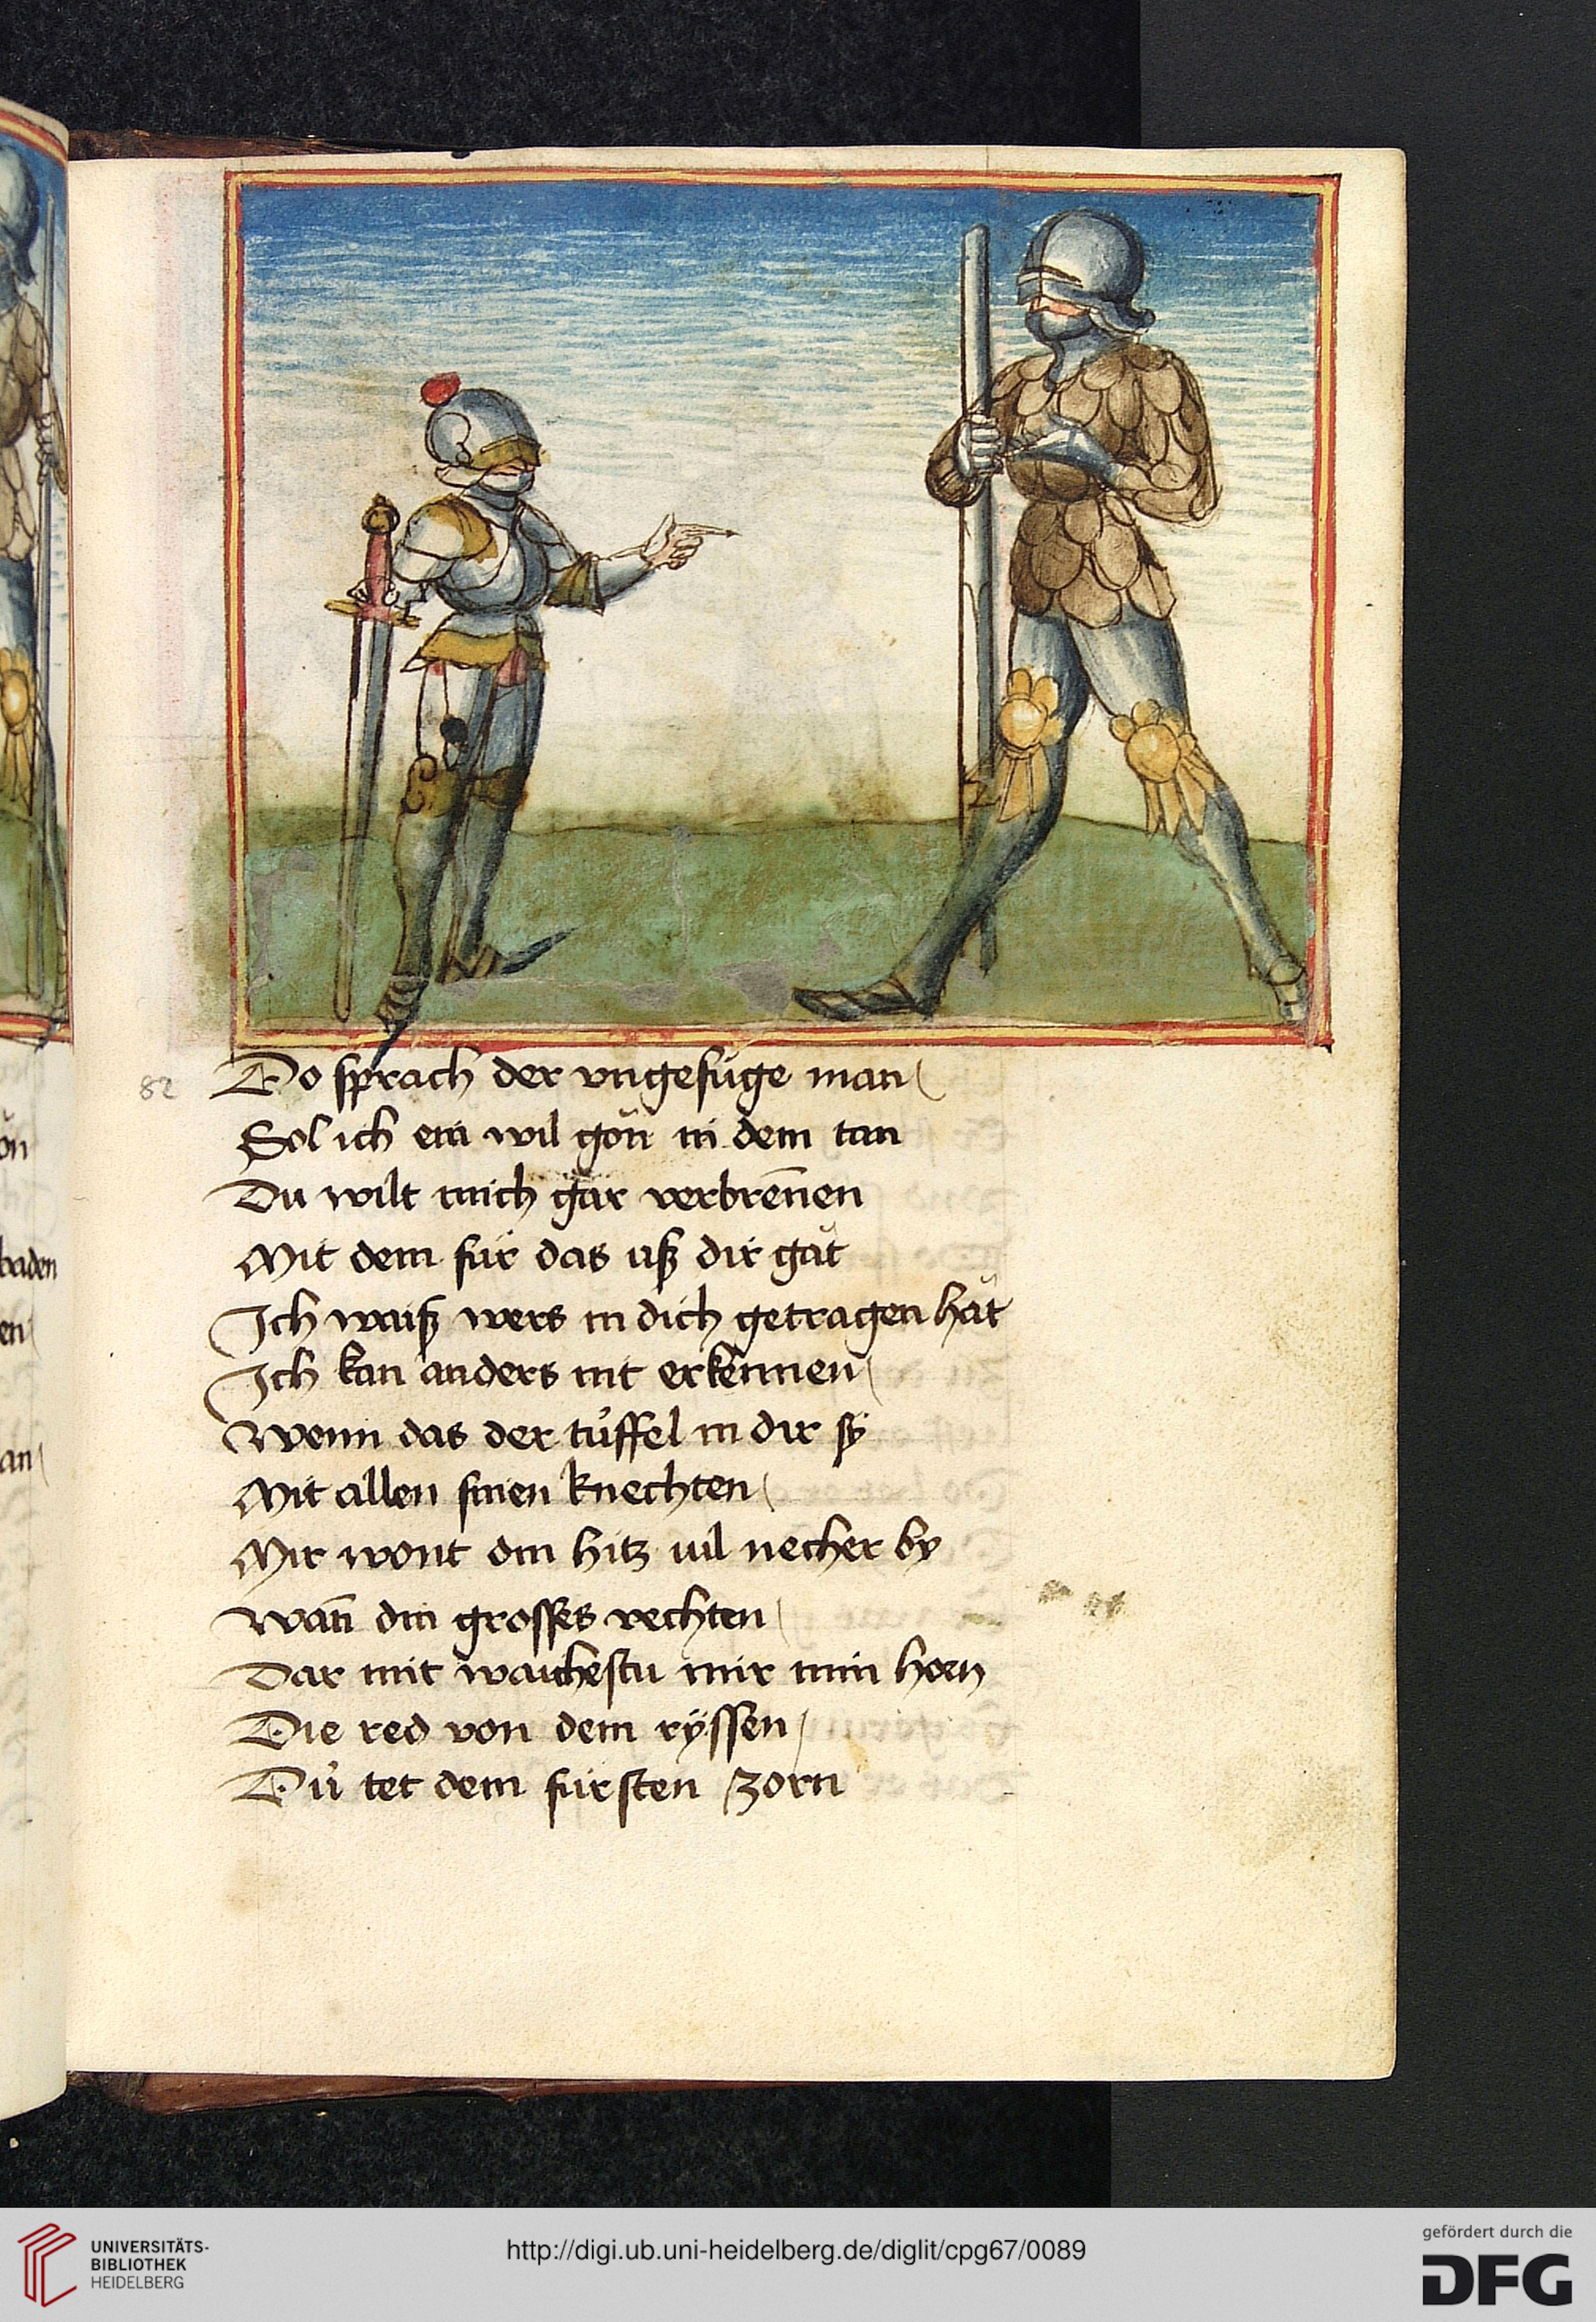 ön
baden
en
an
82
Do sprach der vngefüge man
Sol ich ein wil gön in dem tan
Du wilt mich gar verbrēnen
Mit dem für das uß dir gät
Ich waiß wers in dich getragen hät
Ich kan anders nit erkennen
Wenn das der tüffel in dir sÿ
Mit allen sinen knechten
Mir wont din hitz vil necher by
Wañ din grosses vechten
Dar mit waichestu mir min horn
Die red von dem rÿssen
Dü tet dem fürsten zorn
UNIVERSITÄTS-
BIBLIOTHEK
HEIDELBERG
http://digi.ub.uni-heidelberg.de/diglit/cpg67/0089
gefördert durch die
DFG